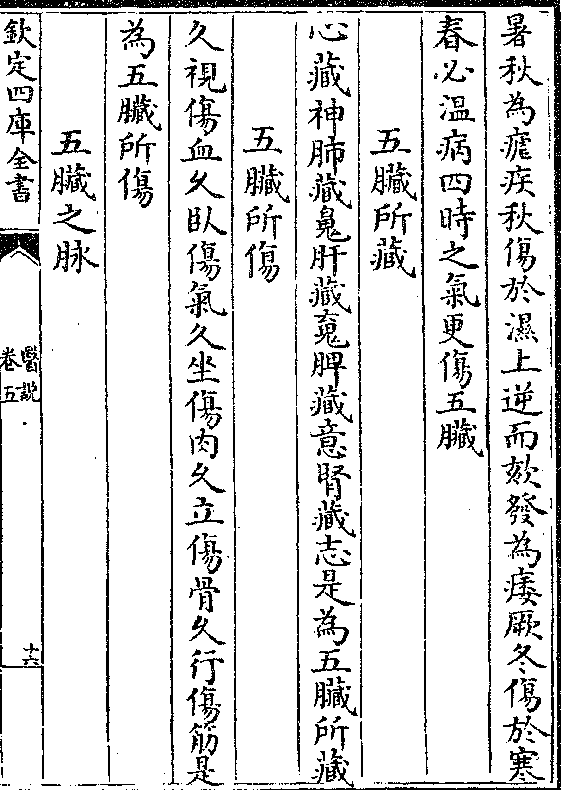 暑秋為瘧疾秋傷於濕上逆而欬發為痿厥冬傷於寒
春必溫病四時之氣更傷五臟
五臟所藏
心藏神肺藏魄肝藏魂脾藏意腎藏志是為五臟所藏
五臟所傷
久視傷血久臥傷氣久坐傷肉久立傷骨久行傷筋是
為五臟所傷
五臟之脉
欽定四庫全書
醫說
卷五
十六